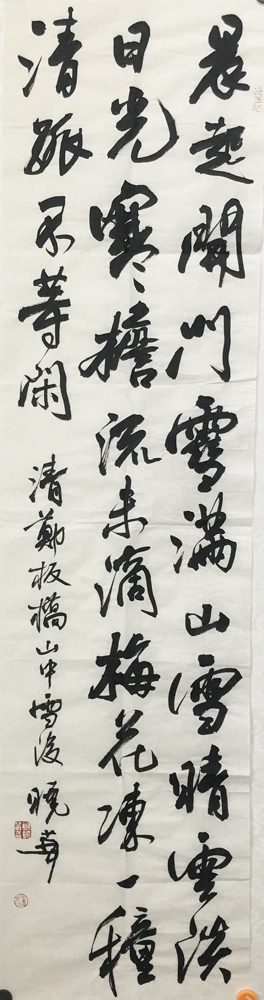 晨起開門雪滿山雪晴雲淡
日光寒檐流未滴梅花凍一種
清孤不等閑
清鄭板橋山中雪後 曉華